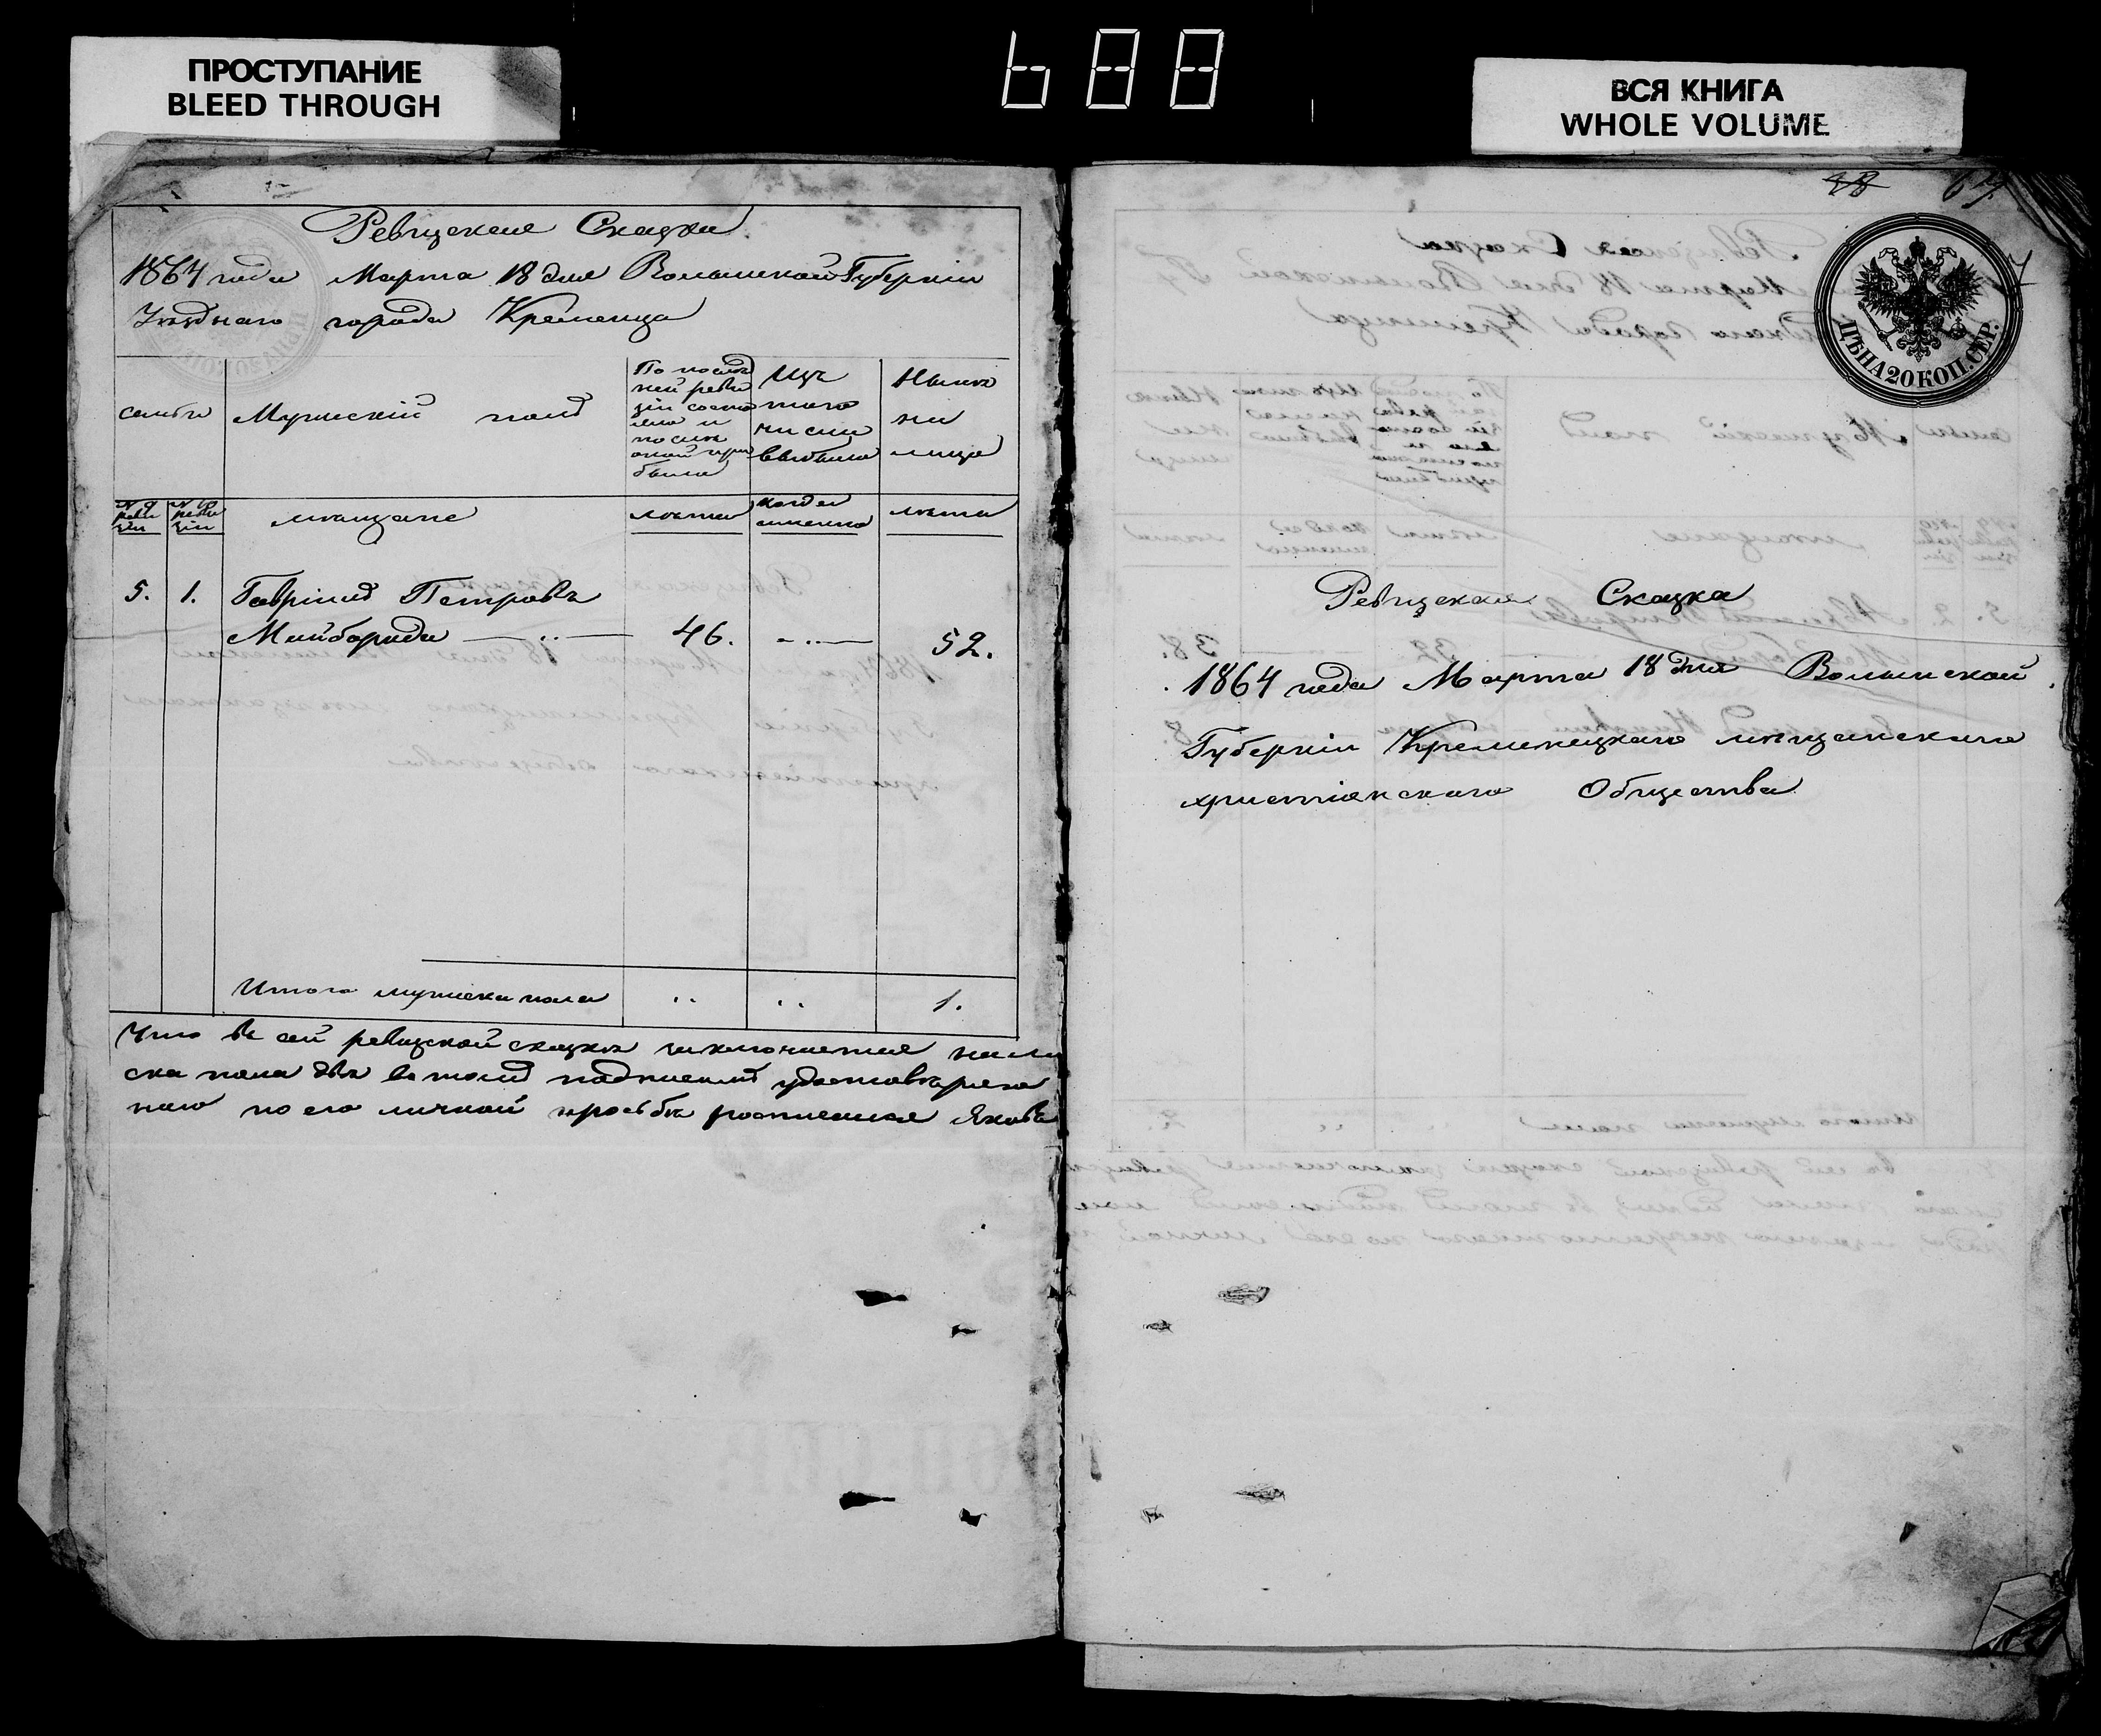 ПРОСТУПАНИЕ
BLEED THROUGH
ВСЯ КНИГА
WHOLE VOLUME
Ревизская Сказка
1864 года Марта 18 дня Волынской Губерніи
Уезднаго города Кременца
семьи
Мужескій полъ
По послѣд
ней реви
зіи состо
яло и
послѣ
оной при
было
Изъ
того
числа
выбыло
Нынѣ
на
лицо
№ 9
реви
зіи
№ 10
реви
зіи
мѣщане
лѣта
когда
именно
лѣта
5. 1. Гавріилъ Петровъ
Майборида 46. 52.
Итого мужеска пола 1.
Что въ сей ревизской сказкѣ заключается
ска пола въ томъ подписомъ удостовѣряю
по его личной просьбѣ росписался Яковъ
48 67
ЦѢНА 20 КОП. СЕР.
Ревизская Сказка
1864 года Марта 18 дня Волынской
Губерніи Кременецкаго мѣщанскаго
христіанскаго Общества